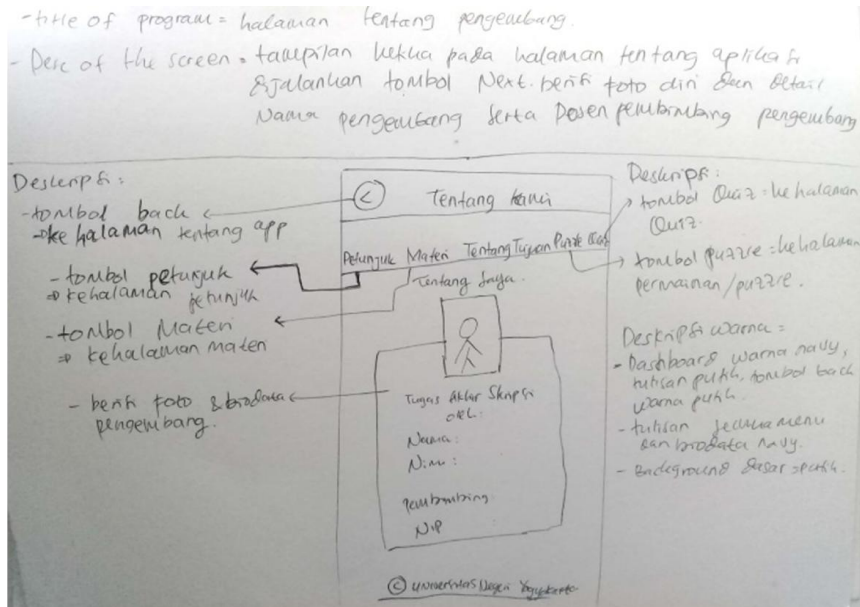 -title of program = halaman tentang pengembang.
- Desc of the screen = tampilan ketika pada halaman tentang aplikasi
dijalankan tombol Next. berisi foto diri dan detail
Nama pengembang serta Dosen pembimbing pengembang
Deskripsi :
-tombol back
→ke halaman tentang app
- tombol petunjuk
⇒ kehalaman petunjuk
-tombol Materi
⇒ kehalaman materi
- berisi foto & biodata
pengembang.
<
Tentang kami
Petunjuk Materi Tentang Tujuan Puzzle Quiz
Tentang Saya.
Tugas Akhir Skripsi
oleh:
Nama :
Nim :
Pembimbing
NIP
© Universitas Negeri Yogyakarta
Deskripsi:
tombol Quiz = ke halaman
Quiz.
tombol puzzle = kehalaman
permainan/puzzle.
Deskripsi warna =
- Dashboard warna navy,
tulisan putih, tombol back
warna putih.
- tulisan semua menu
dan biodata navy.
- Background dasar putih.